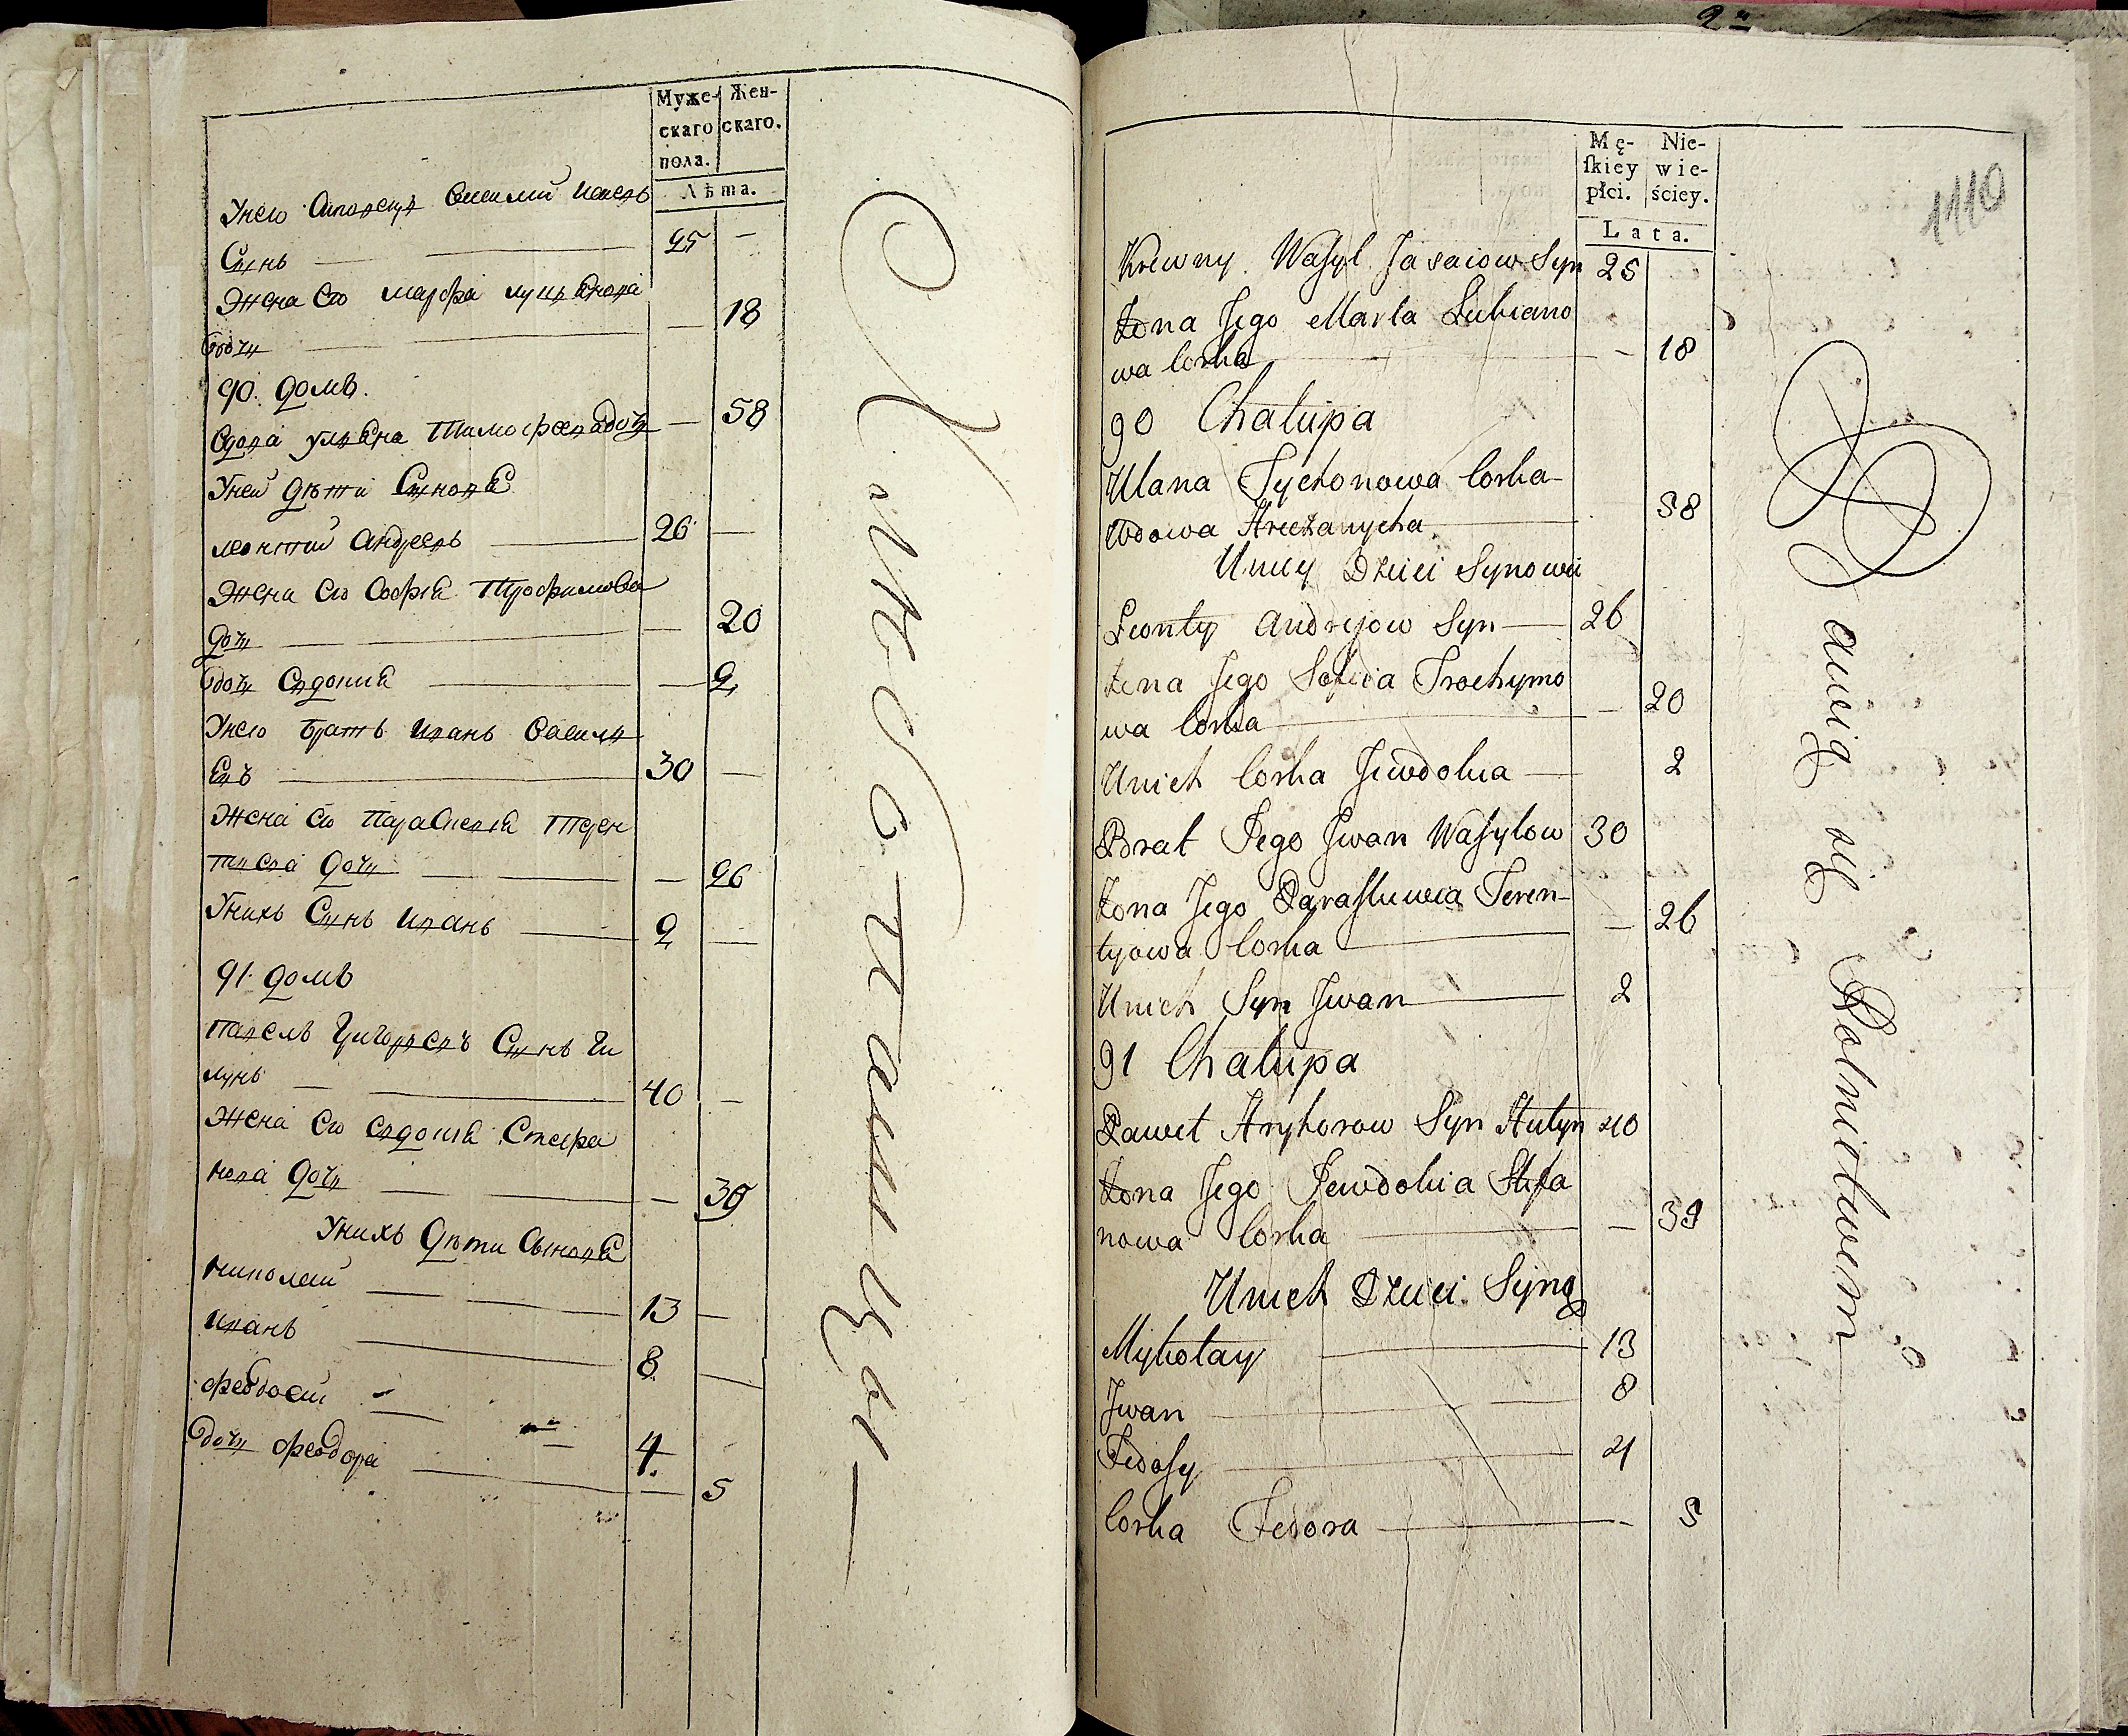 Муже-
скаго
пола.
Жен-
скаго.
Лѣта.
Унего Василий
Сынъ — 25 —
Жена его марфа
дочь — 18
90. домъ.
Вдова улияна Тимофеева дочь — 58
Уней дѣти Синовѣ
леонтий андреевъ — 26 —
Жена его Софія Трофимова
дочь — 20
дочь Евдокиѣ — 2
Унего братъ иванъ василь
евъ — 30 —
Жена его Параскевія Терен
тиева дочь — 26
Унихъ Сынъ иванъ — 2 —
91 домъ
павелъ григорьевъ Сынъ Ги
лунъ — 40 —
Жена его евдокиѣ Стефа
нова дочь — 39
Унихъ Дѣти Сыновѣ
николай — 13 —
иванъ — 8 —
феодосий — 4.
дочь феодора — 5
2
Mę-
ſkiey
płci.
Nie-
wie-
ściey.
Lata.
1110
Krewny Wasyl Syn 25
Żona Jego Marta Lukiano
wa Corka — 18
90 Chałupa
Ulana Tychonowa Corka
Wdowa — 58
Unicy Dzieci Synowie
Leonty Andrejow Syn — 26
Żena Jego Sofia Trochymo
wa Corka — 20
Unich Corka Jewdokia — 2
Brat Jego Jwan Wasylow 30
Żona Jego Paraskiewia Teren-
tyowa Corka — 26
Unich Syn Jwan — 2
91 Chałupa
Paweł Hryhorow Syn Hulyn 40
Żona Jego Jewdokia Stefa
nowa Corka — 39
Unich Dzieci Syny
Mykołay — 13
Jwan — 8
Fedosy — 4
Corka Fedora — 5
bawią się Rolnictwem